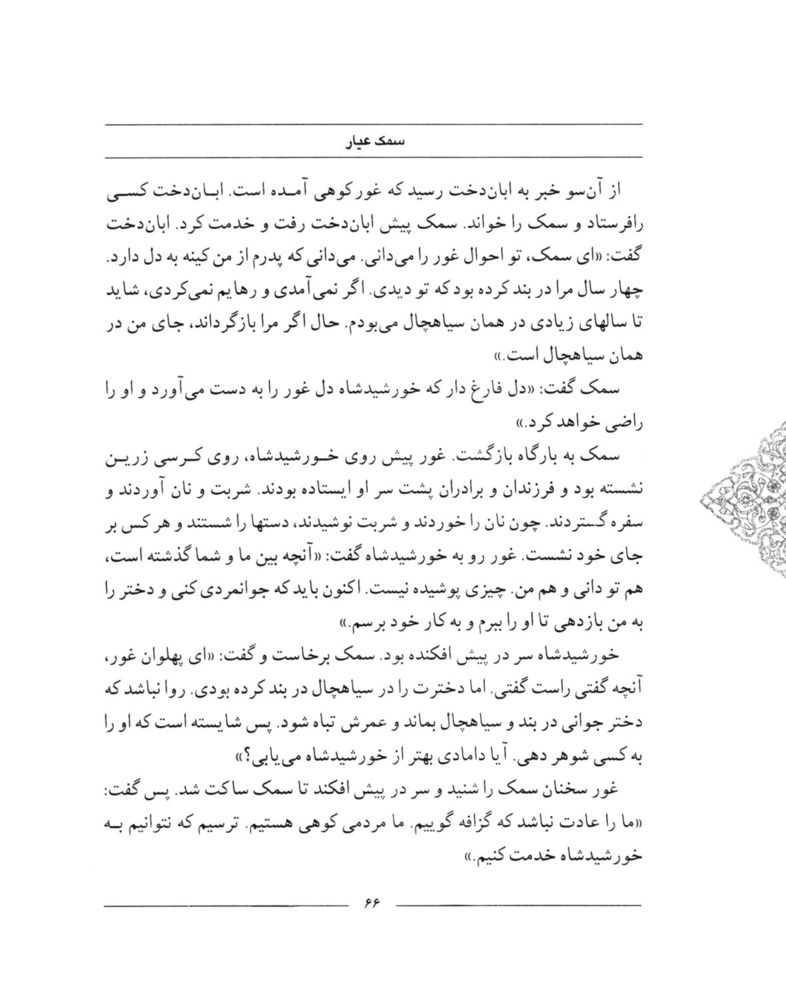 سمک عیار
از آن‌سو خبر به ابان‌دخت رسید که غورکوهی آمـده است. ابـان‌دخت کسـی
رافرستاد و سمک را خواند. سمک پیش ابان‌دخت رفت و خدمت کرد. ابان‌دخت
گفت: «ای سمک، تو احوال غور را می‌دانی. می‌دانی که پدرم از من کینه به دل دارد.
چهار سال مرا در بند کرده بود که تو دیدی. اگر نمی‌آمدی و رهایم نمی‌کردی، شاید
تا سالهای زیادی در همان سیاهچال می‌بودم. حال اگر مرا بازگرداند، جای من در
همان سیاهچال است.»
سمک گفت: «دل فارغ دار که خورشیدشاه دل غور را به دست می‌آورد و او را
راضی خواهد کرد.»
سمک به بارگاه بازگشت. غور پیش روی خـورشیدشاه، روی کـرسی زریـن
نشسته بود و فرزندان و برادران پشت سر او ایستاده بودند. شربت و نان آوردند و
سفره گستردند. چون نان را خوردند و شربت نوشیدند، دستها را شستند و هر کس بر
جای خود نشست. غور رو به خورشیدشاه گفت: «آنچه بین ما و شما گذشته است،
هم تو دانی و هم من. چیزی پوشیده نیست. اکنون باید که جوانمردی کنی و دختر را
به من بازدهی تا او را ببرم و به کار خود برسم.»
خورشیدشاه سر در پیش افکنده بود. سمک برخاست و گفت: «ای پهلوان غور،
آنچه گفتی راست گفتی. اما دخترت را در سیاهچال در بند کرده بودی. روا نباشد که
دختر جوانی در بند و سیاهچال بماند و عمرش تباه شود. پس شایسته است که او را
به کسی شوهر دهی. آیا دامادی بهتر از خورشیدشاه می‌یابی؟»
غور سخنان سمک را شنید و سر در پیش افکند تا سمک ساکت شد. پس گفت:
«ما را عادت نباشد که گزافه گوییم. ما مردمی کوهی هستیم. ترسیم که نتوانیم بـه
خورشیدشاه خدمت کنیم.»
۶۶